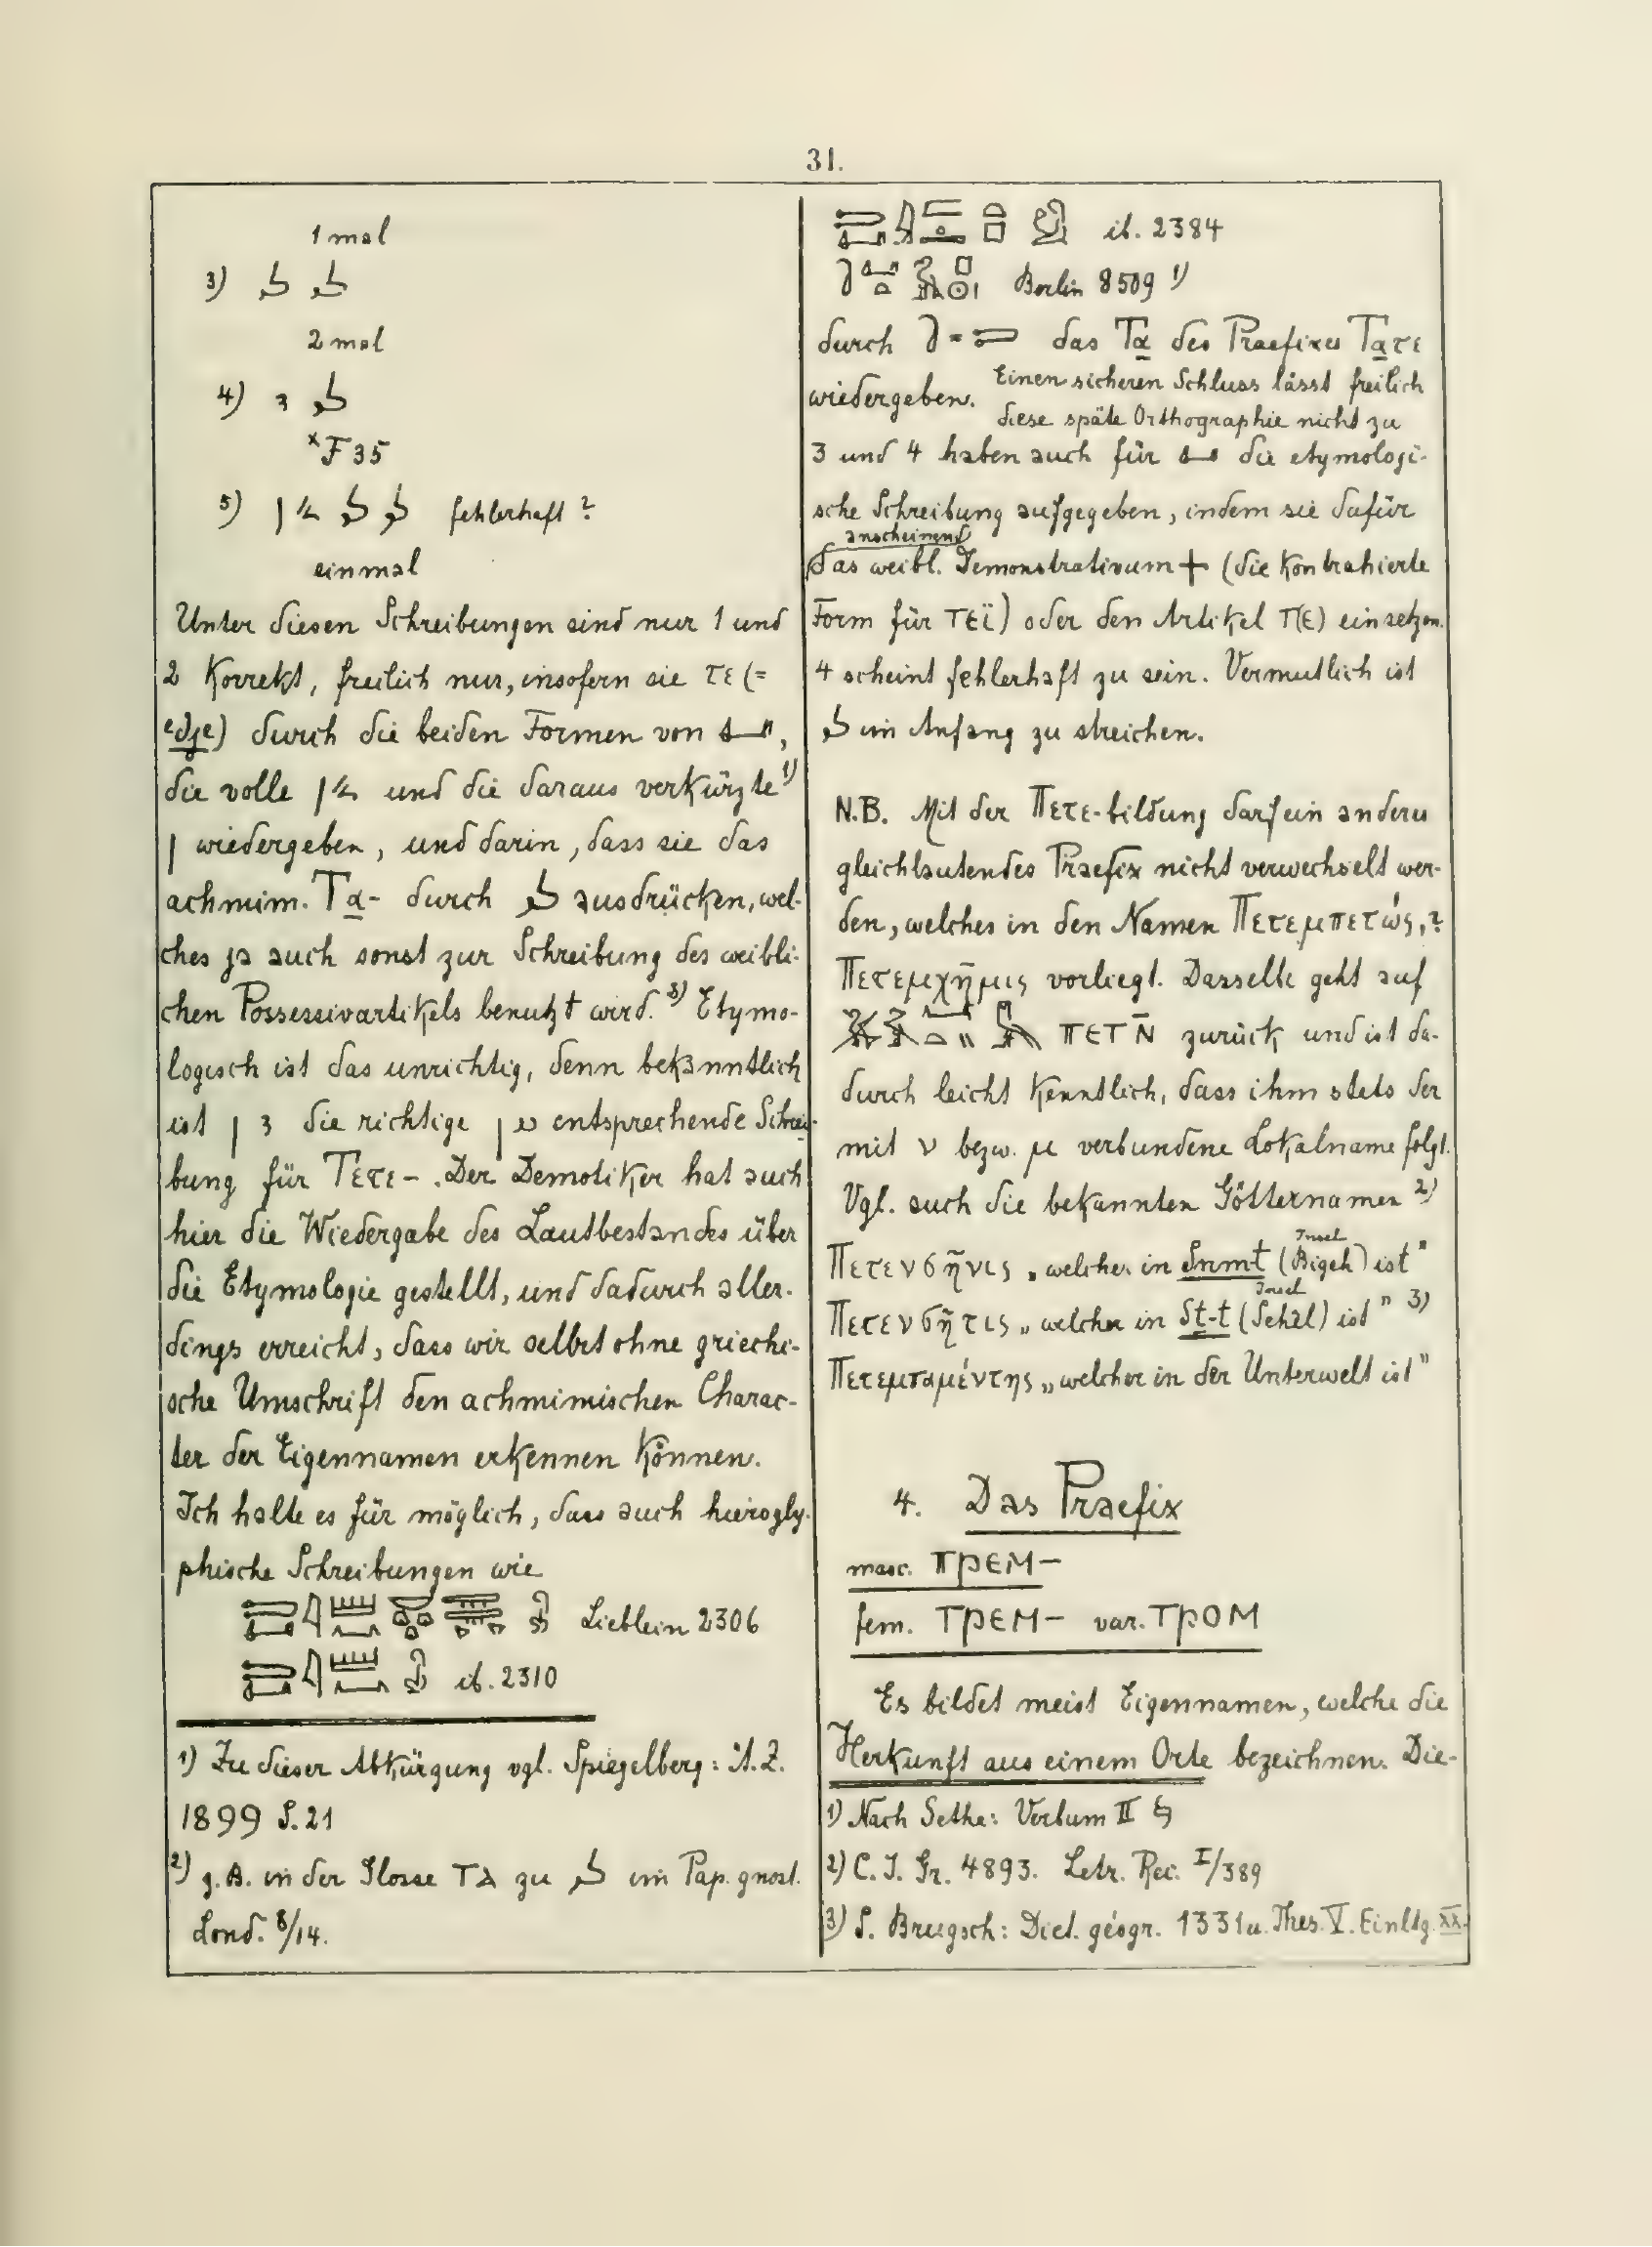 31.
1 mal
3)
2 mal
4)
*F 35
5) fehlerhaft?
einmal
Unter diesen Schreibungen sind nur 1 und
2 Korrekt, freilich nur, insofern sie τε (=
) durch die beiden Formen von ,
die volle und die daraus verkürzte 1)
wiedergeben, und darin, dass sie das
achmim. Τα- durch ausdrücken, wel-
ches ja auch sonst zur Schreibung des weibli-
chen Possessivartikels benutzt wird. Etymo-
logisch ist das unrichtig, denn bekanntlich
ist die richtige entsprechende Schrei-
bung für Τετε-. Der Demotiker hat auch
hier die Wiedergabe des Lautbestandes über
die Etymologie gestellt, und dadurch aller-
dings erreicht, dass wir selbst ohne griechi-
sche Umschrift den achmimischen Charac-
ter der Eigennamen erkennen Können.
Ich halte es für möglich, dass auch hierogly-
phische Schreibungen wie
Lieblein 2306
ib. 2310
1) Zu dieser Abkürzung vgl. Spiegelberg: Ä.Z.
1899 S. 21
2) z.B. in der Glosse ⲧⲁ zu im Pap. gnost.
Lond. 8/14.
ib. 2384
Berlin 8509 1)
durch = das Τα des Praefixes Τατε
wiedergeben. Einen sicheren Schluss lässt freilich
diese späte Orthographie nicht zu
3 und 4 haben auch für die etymologi-
sche Schreibung aufgegeben, indem sie dafür
anscheinend
das weibl. Demonstrativum ϯ (die Kontrahierte
Form für ⲧⲉⲓ̈) oder den Artikel ⲧ(ⲉ) einsetzen.
4 scheint fehlerhaft zu sein. Vermutlich ist
im Anfang zu streichen.
N.B. Mit der Πετε-bildung darf ein anderes
gleichlautendes Praefix nicht verwechselt wer-
den, welches in den Namen Πετεμπετώς, ?
Πετεμχῆμις vorliegt. Dasselbe geht auf
ⲡⲉⲧⲛ̄ zurück und ist da-
durch leicht Kenntlich, dass ihm stets der
mit ν bezw. μ verbundene Lokalname folgt.
Vgl. auch die bekannten Götternamen 2)
Insel
Πετενσῆνις „welcher in Snmt (Bigeh) ist"
Insel
Πετενσῆτις „welcher in St-t (Sehêl) ist" 3)
Πετεμπαμέντης „welcher in der Unterwelt ist"
4. Das Praefix
masc. ⲡⲣⲉⲙ-
fem. ⲧⲣⲉⲙ- var. ⲧⲣⲟⲙ
Es bildet meist Eigennamen, welche die
Herkunft aus einem Orte bezeichnen. Die-
1) Nach Sethe: Verbum II
2) C. I. Gr. 4893. Letr. Rec. I/389
3) S. Brugsch: Dict. géogr. 1331 u. Thes. V. Einltg. XX.